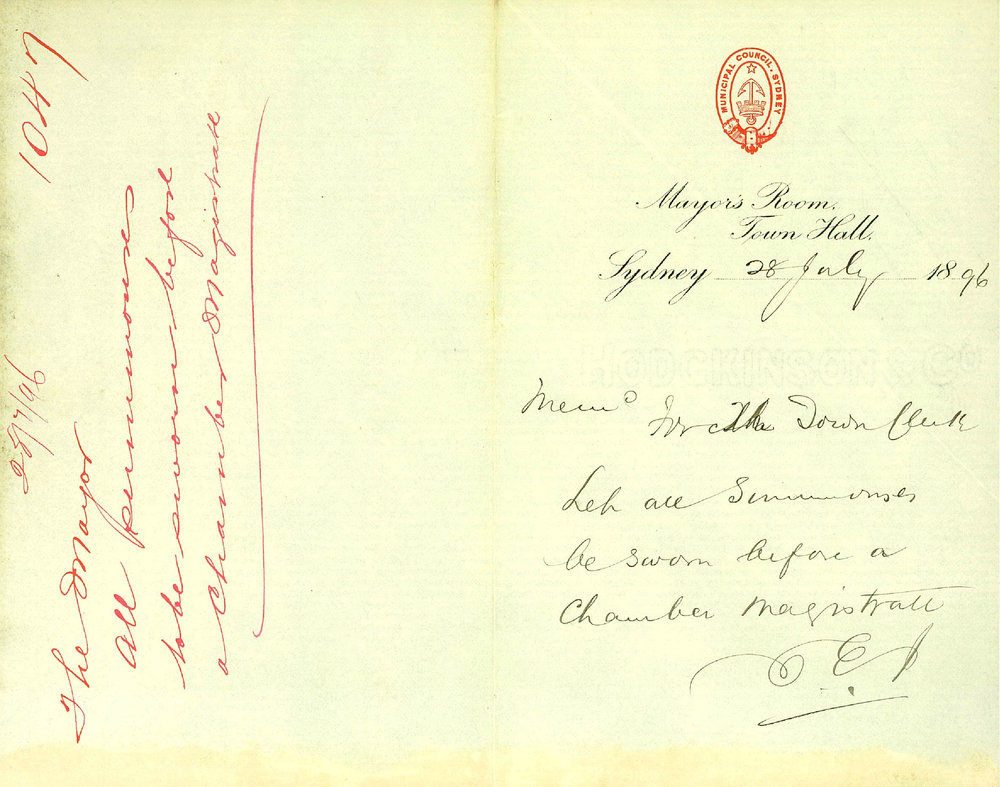 1047
28/7/96
The Mayor
All summonses
to be sworn before
a Chamber Magistrate
MUNICIPAL COUNCIL. SYDNEY
Mayor's Room.
Town Hall.
Sydney 28 July 1896
Memo For the Town Clerk
Let all Summonses
be sworn before a
Chamber Magistrate